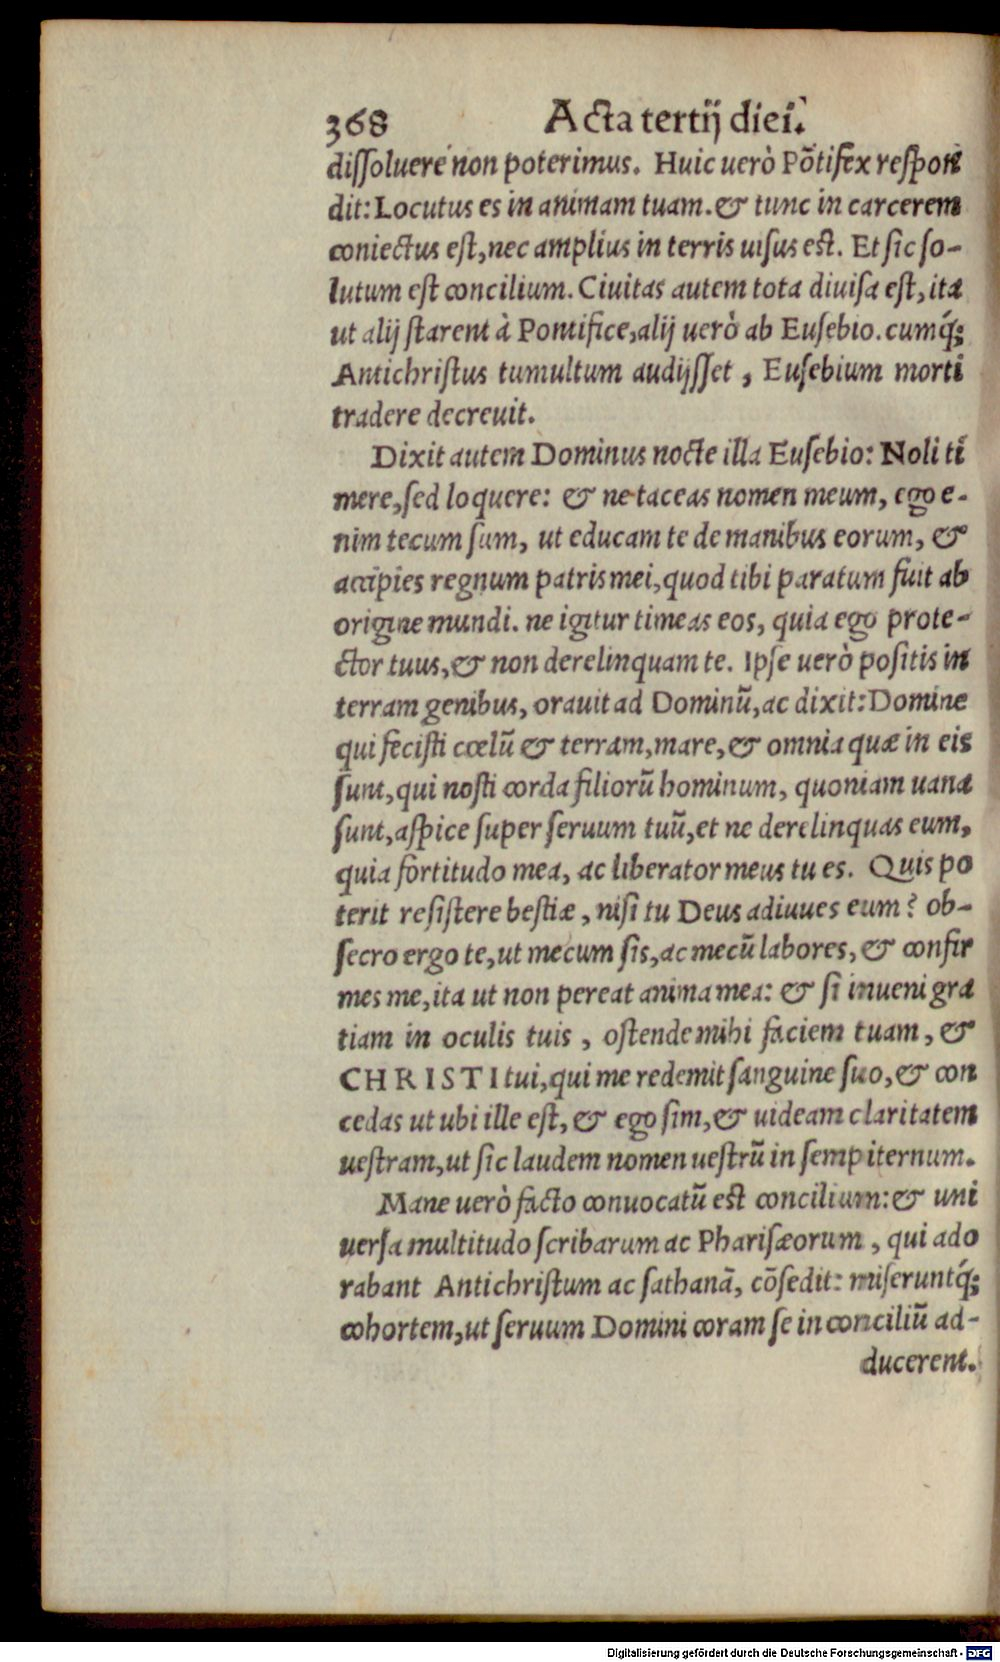 368 Acta tertij diei.
dissoluere non poterimus. Huic uerò Põtifex respon
dit: Locutus es in animam tuam. & tunc in carcerem
coniectus est, nec amplius in terris uisus est. Et sic so-
lutum est concilium. Ciuitas autem tota diuisa est, ita
ut alij starent à Pontifice, alij uerò ab Eusebio. cumq́;
Antichristus tumultum audijsset, Eusebium morti
tradere decreuit.
Dixit autem Dominus nocte illa Eusebio: Noli ti
mere, sed loquere: & ne taceas nomen meum, ego e-
nim tecum sum, ut educam te de manibus eorum, &
accipies regnum patris mei, quod tibi paratum fuit ab
origine mundi. ne igitur timeas eos, quia ego prote-
ctor tuus, & non derelinquam te. Ipse uerò positis in
terram genibus, orauit ad Dominũ, ac dixit: Domine
qui fecisti cœlũ & terram, mare, & omnia quæ in eis
sunt, qui nosti corda filiorũ hominum, quoniam uana
sunt, aspice super seruum tuũ, et ne derelinquas eum,
quia fortitudo mea, ac liberator meus tu es. Quis po
terit resistere bestiæ, nisi tu Deus adiuues eum? ob-
secro ergo te, ut mecum sis, ac mecũ labores, & confir
mes me, ita ut non pereat anima mea: & si inueni gra
tiam in oculis tuis, ostende mihi faciem tuam, &
CHRISTI tui, qui me redemit sanguine suo, & con
cedas ut ubi ille est, & ego sim, & uideam claritatem
uestram, ut sic laudem nomen uestrũ in sempiternum.
Mane uerò facto conuocatũ est concilium: & uni
uersa multitudo scribarum ac Pharisæorum, qui ado
rabant Antichristum ac sathanã, cõsedit: miseruntq́;
cohortem, ut seruum Domini coram se in conciliũ ad-
ducerent.
Digitalisierung gefördert durch die Deutsche Forschungsgemeinschaft - DFG